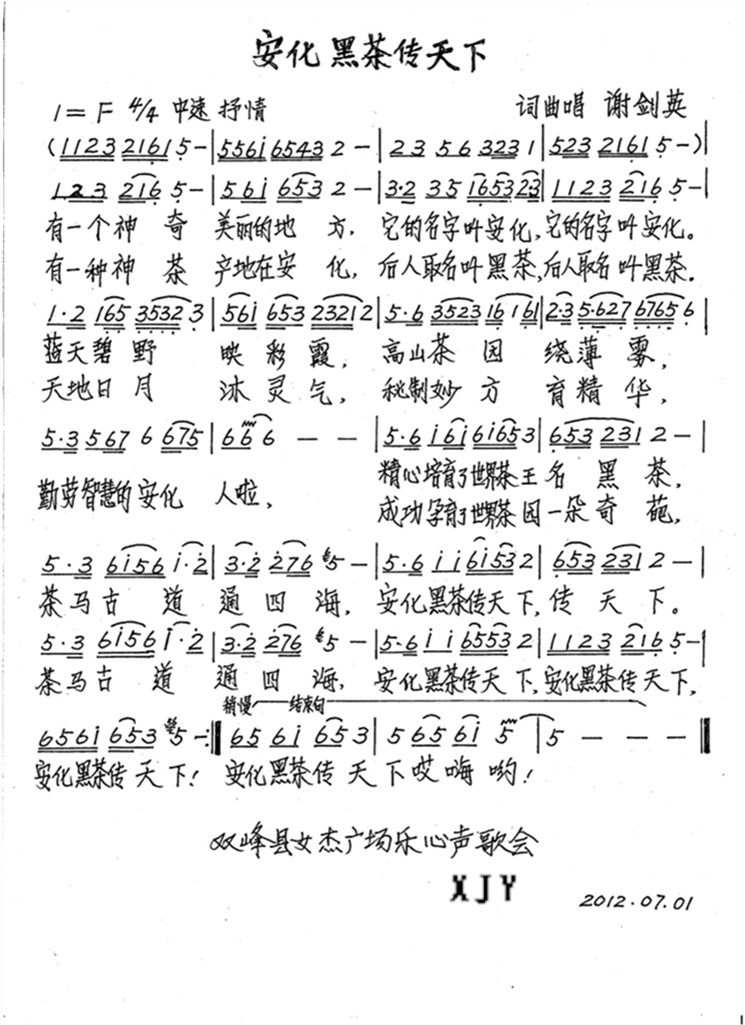 安化黑茶传天下
1=F 4/4 中速 抒情 词曲唱 谢剑英
(1123 2161 5-|556i 6543 2-|23 56 323 1|523 2161 5-)|
123 216 5-|561 653 2-|3·2 35 165323|1123 216 5-|
有一个神奇 美丽的地方,它的名字叫安化,它的名字叫安化。
有一种神茶 产地在安化,后人取名叫黑茶,后人取名叫黑茶.
1·2 165 3532 3|561 653 23212|5·6 3523 16 161|2·3 5·627 6765 6|
蓝天碧野 映彩霞, 高山茶园 绕薄雾,
天地日月 沐灵气, 秘制妙方 育精华,
5·3 567 6 675|66 6 - -|5·6 i6i 6i653|653 231 2-|
勤劳智慧的安化 人啦, 精心培育了世界茶王名黑茶,
成功孕育了世界茶园一朵奇葩,
5·3 6i56 i·2|3·2 276 5-|5·6 ii 6i53 2|653 231 2-|
茶马古道 通四海, 安化黑茶传天下,传天下。
5·3 6i56 i·2|3·2 276 5-|5·6 ii 6553 2|1123 216 5-|
茶马古道 通四海, 安化黑茶传天下,安化黑茶传天下,
稍慢 结束句
656i 653 5-:‖65 6i 653|5 656i 5|5 - - -‖
安化黑茶传天下! 安化黑茶传天下哎嗨哟!
双峰县女杰广场乐心声歌会
XJY
2012.07.01